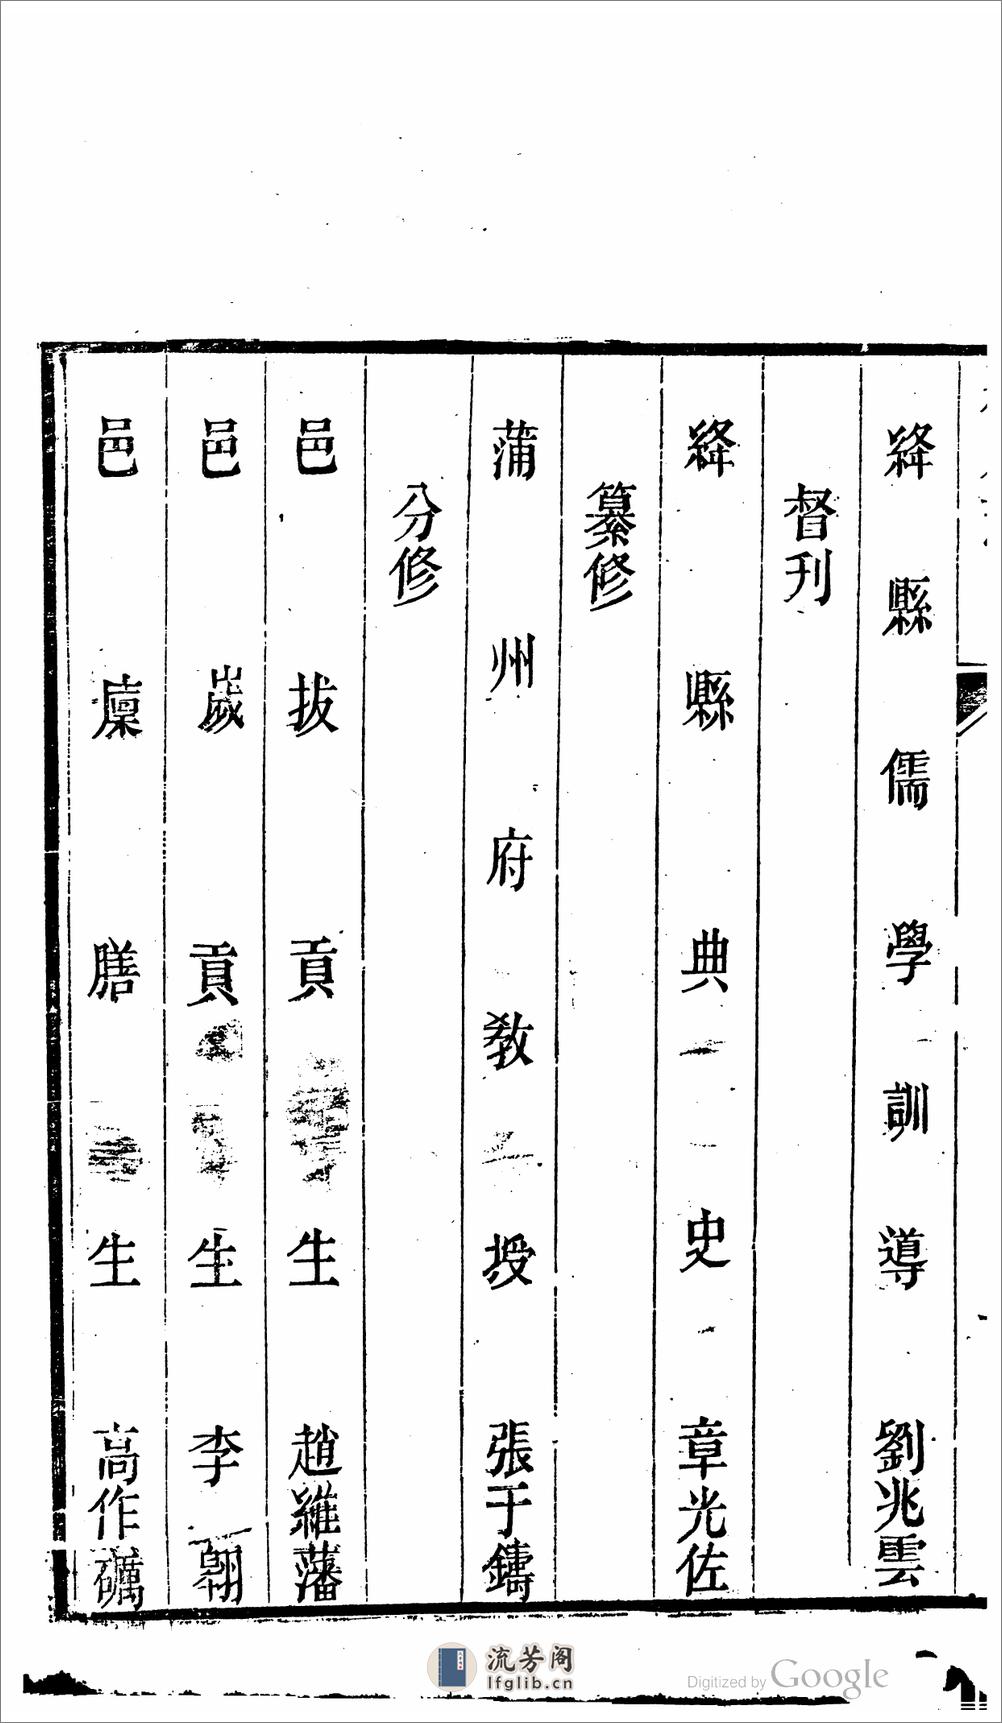 絳縣儒學訓導劉兆雲
督刊
絳縣典史章光佐
纂修
蒲州府教授張于鑄
分修
邑拔貢生趙維藩
邑歲貢生李翱
邑廩膳生高作礪
流芳阁
lfglib.cn
Digitized by Google